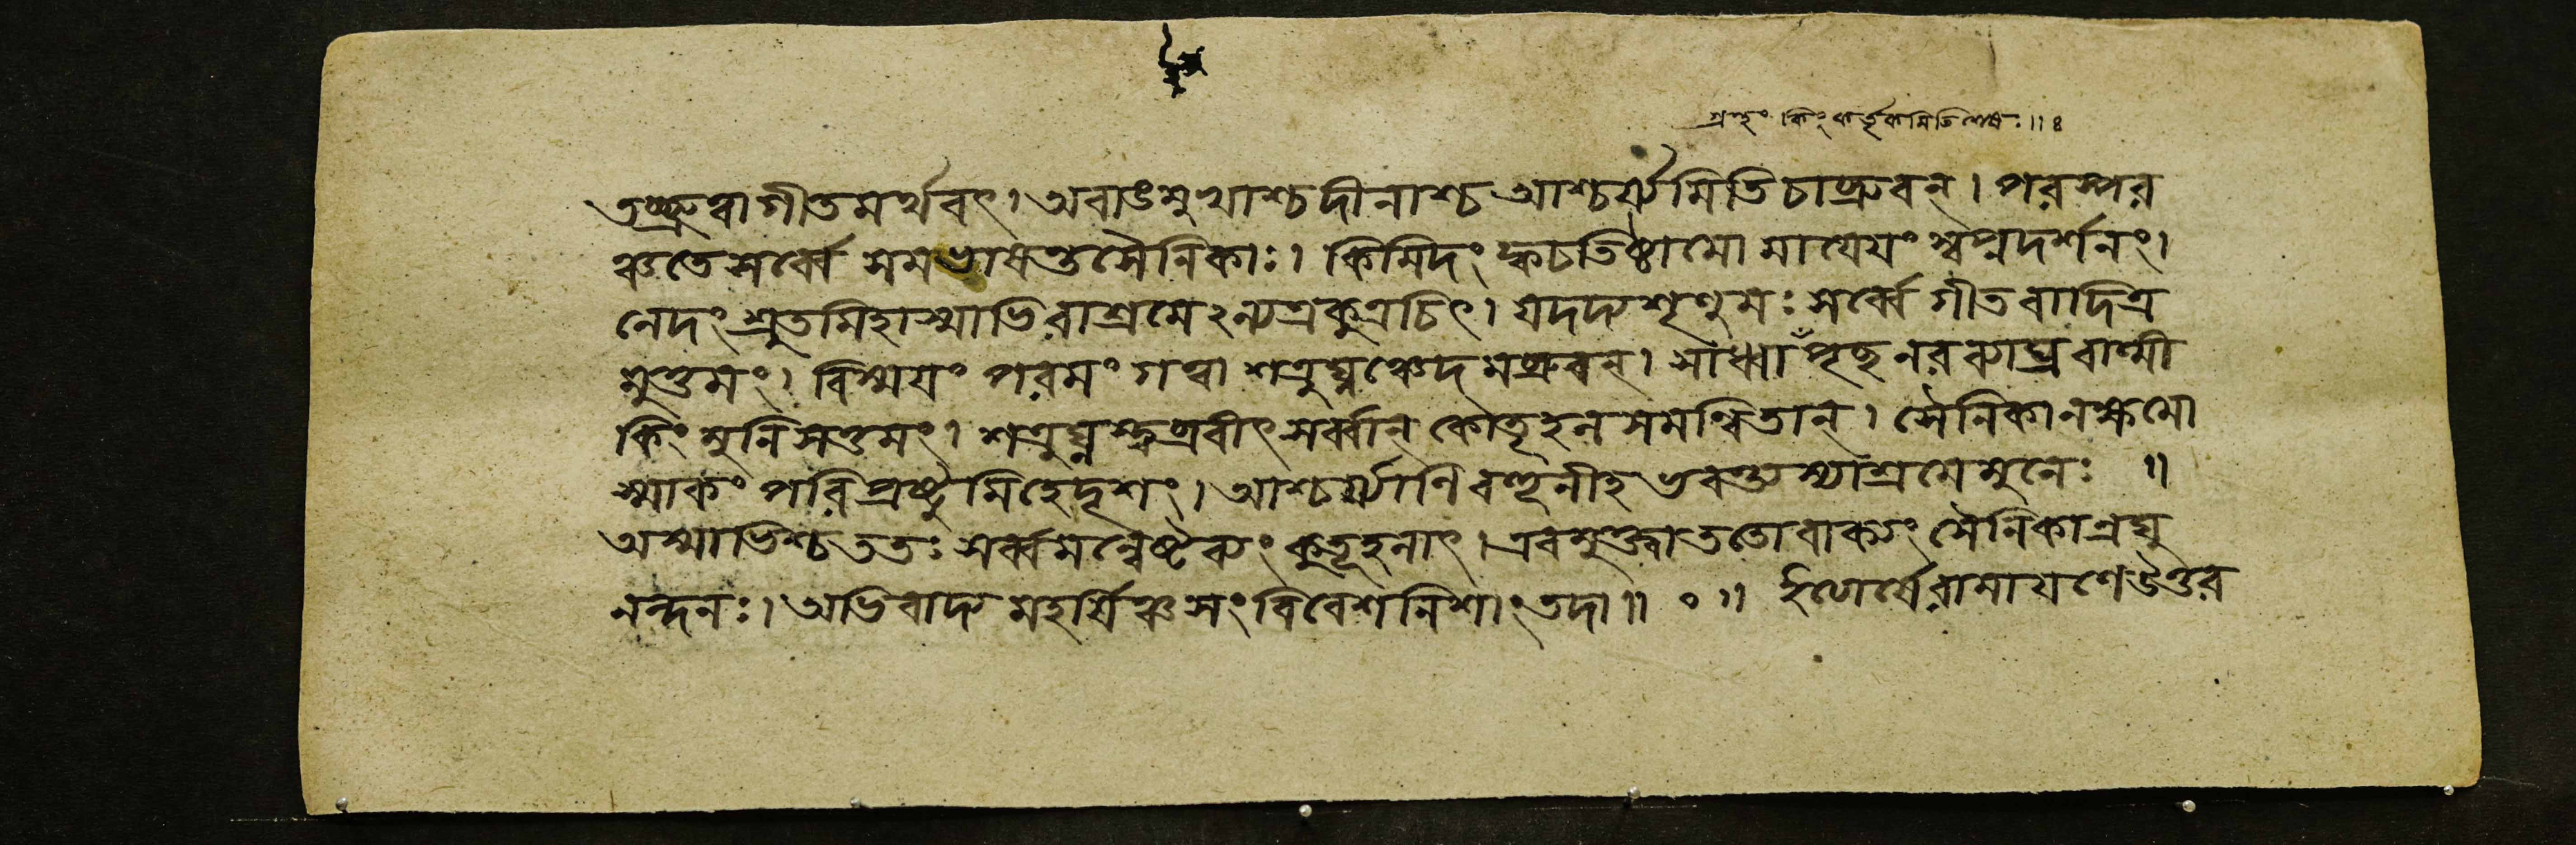 গ্রন্থং কিং কর্তৃকমিতিশেষঃ॥ ৪
তচ্ছ্রুত্বাগীতমর্থবৎ। অবাঙমুখাশ্চদীনাশ্চআশ্চর্য্যমিতিচাব্রুবন্। পরস্পর
ঞ্চতেসর্ব্বে সমভাষন্তসৈনিকাঃ। কিমিদং ক্বচতিষ্ঠামো মায়েয়ং স্বপ্নদর্শনং।
নেদং শ্রুতমিহাস্মাভিরাশ্রমেঽন্যত্রকুত্রচিৎ। যদদ্যশৃণুমঃ সর্ব্বে গীতবাদিত্র
মুত্তমং। বিস্ময়ং পরমং গত্বা শত্রুঘ্নঞ্চেদমব্রুবন্। সাধ্বাঁপৃছনরব্যাঘ্রবাল্মী
কিং মুনিসত্তমং। শত্রুঘ্নস্ত্বব্রবীৎসর্ব্বান্ কৌতূহলসমন্বিতান্। সৈনিকানক্ষমো
স্মাকং পরিপ্রষ্টুমিহেদৃশং। আশ্চর্য্যাণিবহূনীহভবন্ত্যস্যাশ্রমেমুনেঃ ॥
অস্মাভিশ্চততঃ সর্ব্বমন্বেষ্টব্যং কুতূহলাৎ। এবমুক্ত্বাততোবাক্যং সৈনিকান্রঘু
নন্দনঃ। অভিবাদ্য মহর্ষিঞ্চসংবিবেশনিশাংতদা॥ ০ ॥ ইত্যার্ষেরামায়ণেউত্তর